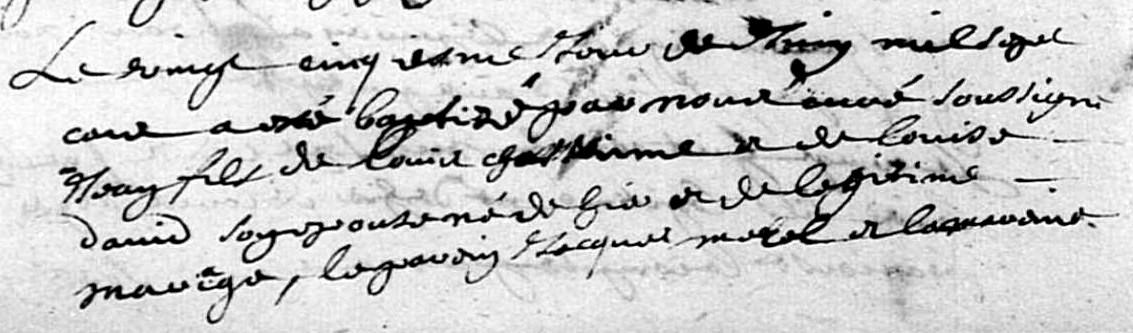 Le vingt cinq iesme Jour de Juin mil sept
cens a esté baptizé par nous curé soussigné
Jean fils de Louis et de Louise
david son epouse né de hier et de legitime
mariage, le parein Jacques morel et la mareine